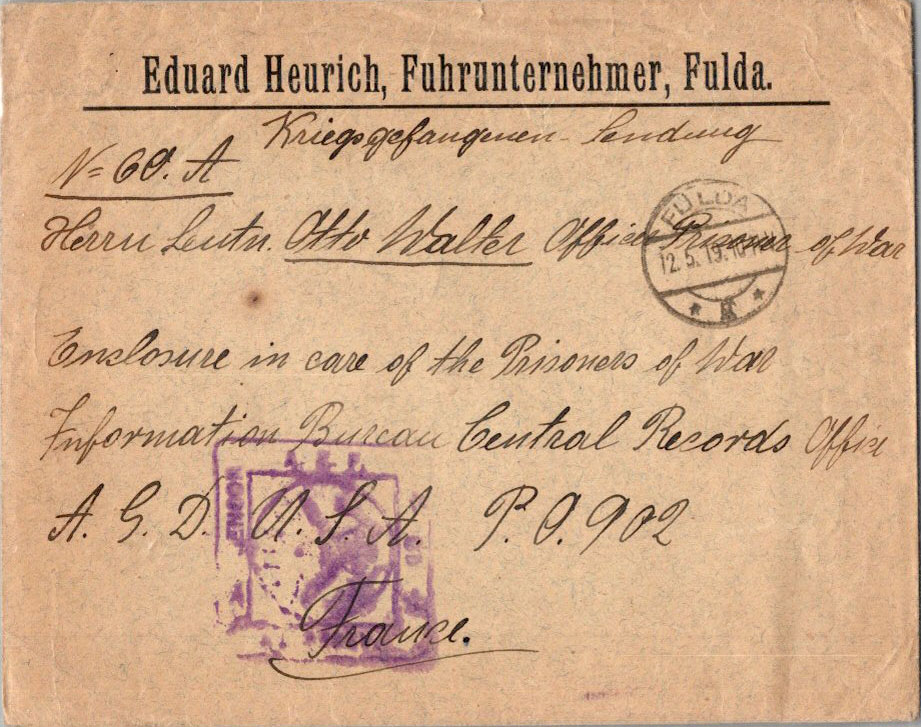 Eduard Heurich, Fuhrunternehmer, Fulda.
Kriegsgefangenen-Sendung
N= 60. A
Herrn Leutn. Otto Walter Officer Prisoner of War
FULDA
12.5.19.
* *
Enclosure in care of the Prisoners of War
Information Bureau Central Records Office
A. G. D. U. S. A. P. O. 902
A.E.F.
France.